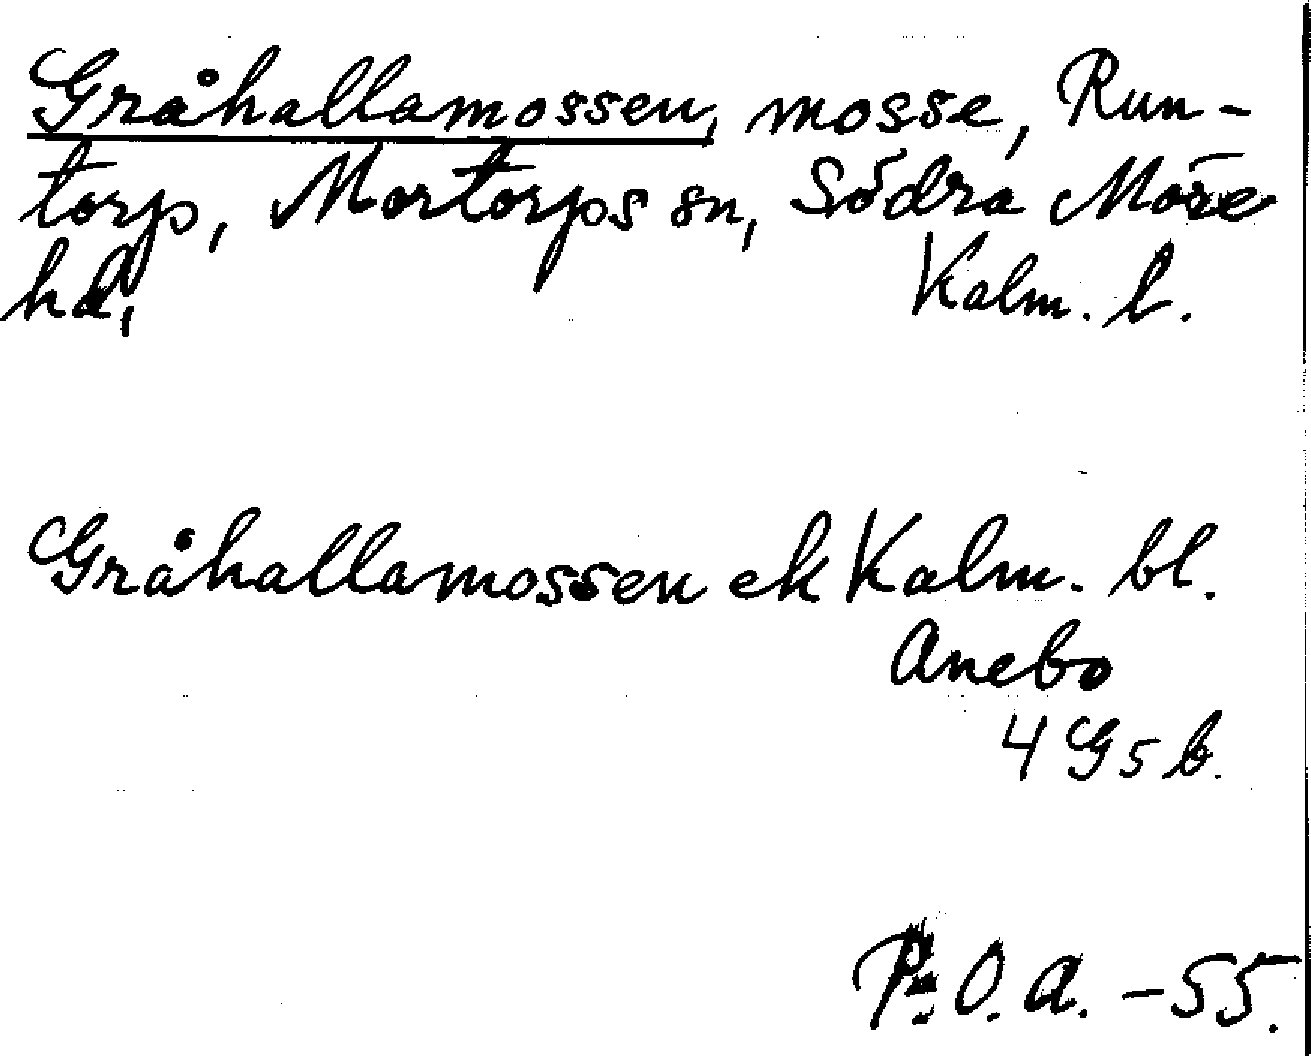 Gråhallamossen, mosse, Run-
torp, Mortorps sn, Södra Möre
hd, Kalm. l.
Gråhallamossen ek Kalm. bl.
Anebo
4 G 5 b.
P. O. A. - 55.